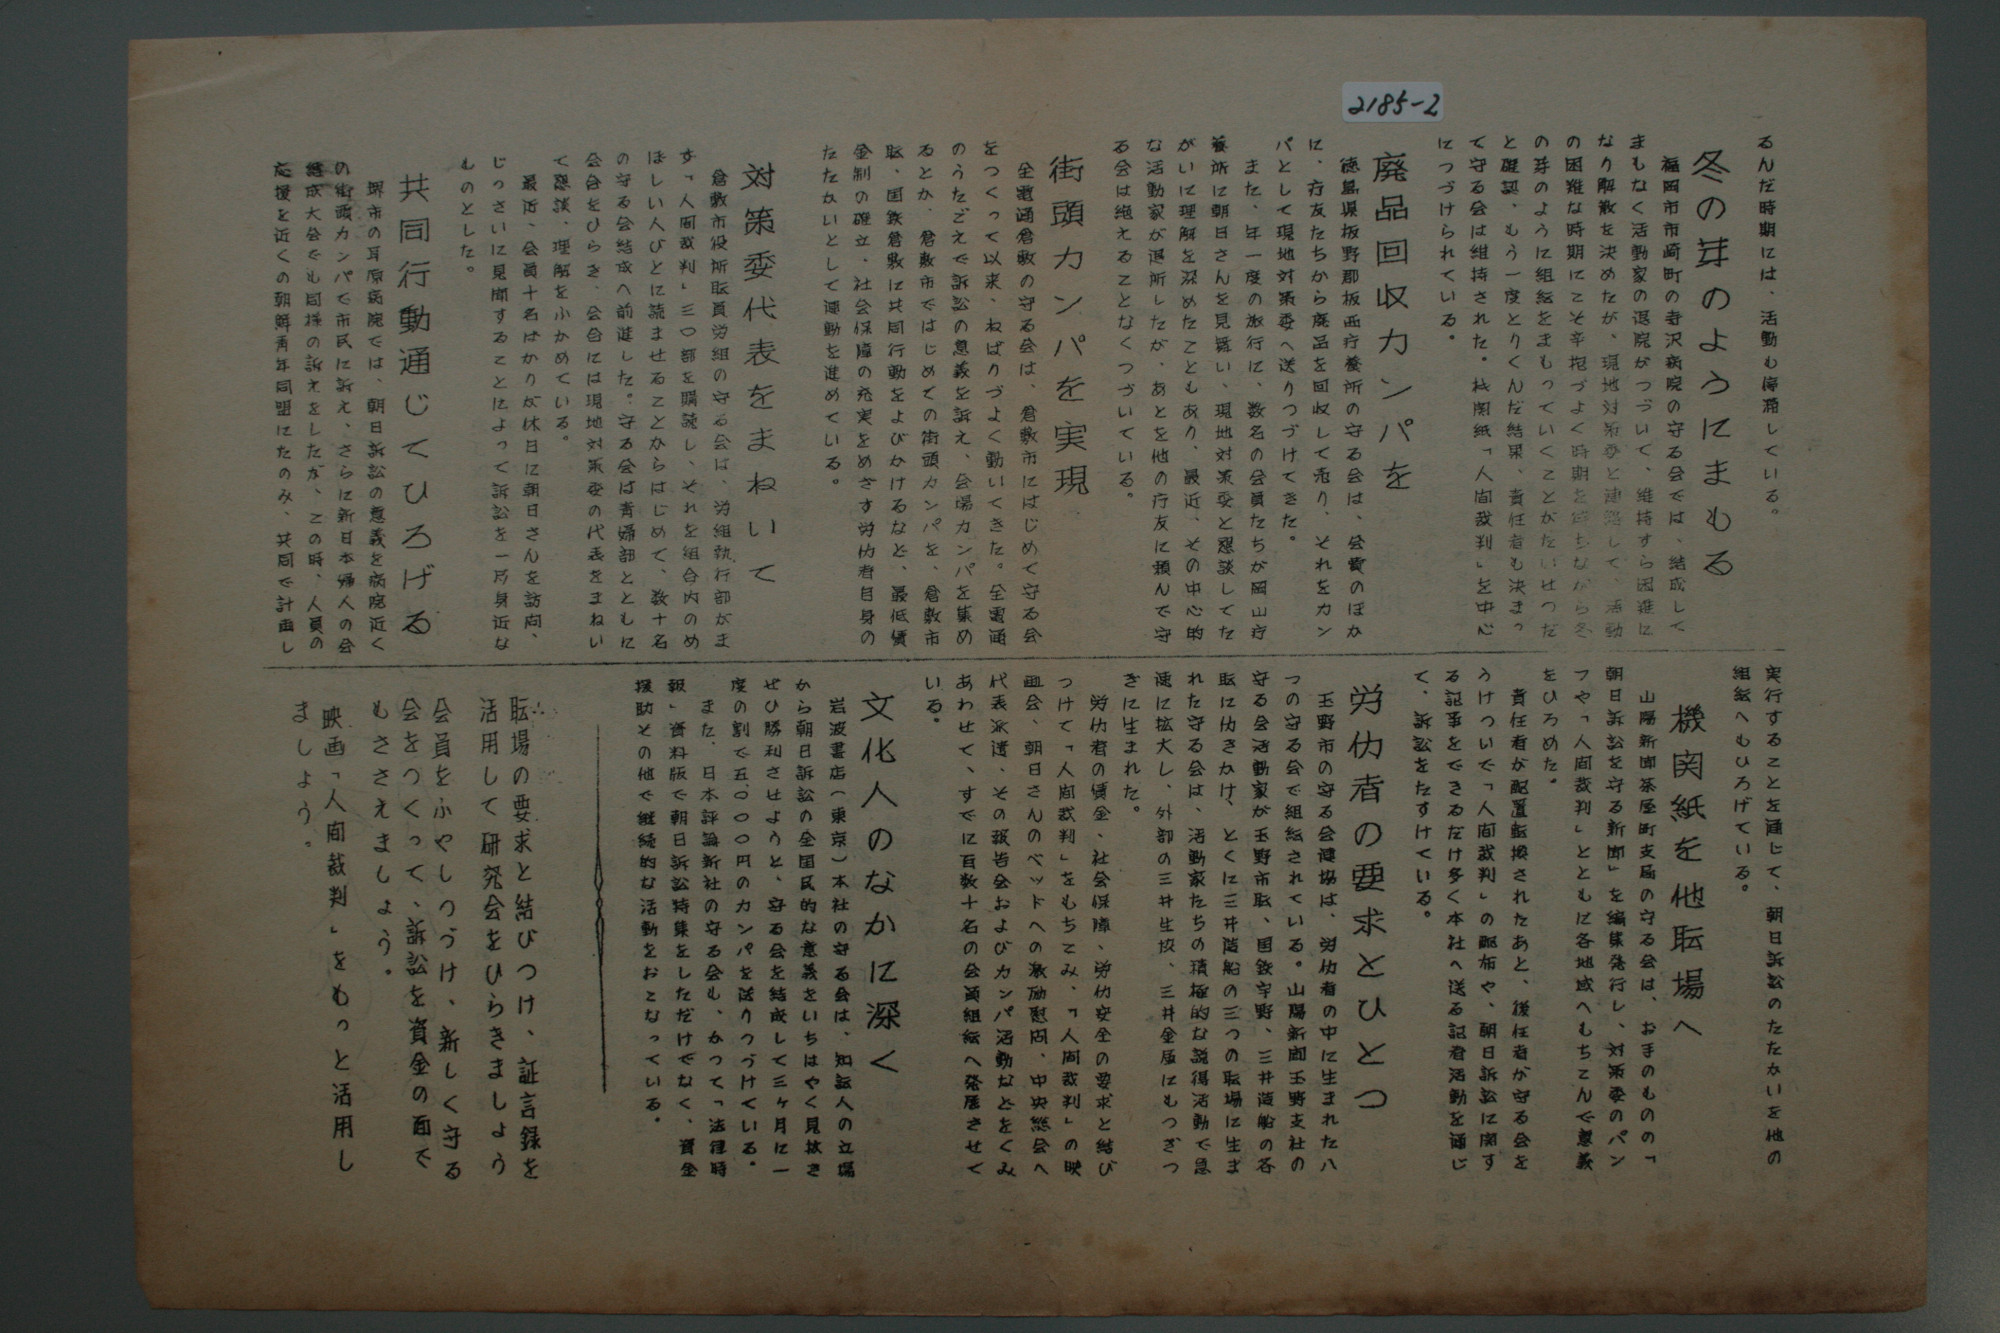 2185-2
るんだ時期には、活動も停滞している。
冬の芽のようにまもる
福岡市市崎町の寺沢病院の守る会では、結成して
まもなく活動家の退院がつづいて、維持すら困難に
なり解散を決めたが、現地対策委と連絡して、活動
の困難な時期にこそ辛抱づよく時期を待ちながら冬
の芽のように組織をまもっていくことがたいせつだ
と確認、もう一度とりくんだ結果、責任者も決まっ
て守る会は維持された。機関紙「人間裁判」を中心
につづけられている。
廃品回収カンパを
徳島県板野郡板西疗養所の守る会は、会費のほか
に、疗友たちから廃品を回収して売り、それをカン
パとして現地対策委へ送りつづけてきた。
また、年一度の旅行に、数名の会員たちが岡山疗
養所に朝日さんを見舞い、現地対策委と懇談してた
がいに理解を深めたこともあり、最近、その中心的
な活動家が退所したが、あとを他の疗友に頼んで守
る会は絶えることなくつづいている。
街頭カンパを実現
全電通倉敷の守る会は、倉敷市にはじめて守る会
をつくって以来、ねばりづよく動いてきた。全電通
のうたごえで訴訟の意義を訴え、会場カンパを集め
るとか、倉敷市ではじめての街頭カンパを、倉敷市
職、国鉄倉敷に共同行動をよびかけるなど、最低賃
金制の確立、社会保障の充実をめざす労仂者自身の
たたかいとして運動を進めている。
対策委代表をまねいて
倉敷市役所職員労組の守る会は、労組執行部がま
ず「人間裁判」三〇部を購読し、それを組合内のめ
ぼしい人びとに読ませることからはじめて、数十名
の守る会結成へ前進した。守る会は青婦部とともに
会合をひらき、会合には現地対策委の代表をまねい
て懇談、理解をふかめている。
最近、会員十名ばかりが休日に朝日さんを訪問、
じっさいに見聞することによって訴訟を一層身近な
ものとした。
共同行動通じてひろげる
堺市の耳原病院では、朝日訴訟の意義を病院近く
の街頭カンパで市民に訴え、さらに新日本婦人の会
結成大会でも同様の訴えをしたが、この時、人員の
応援を近くの朝鮮青年同盟にたのみ、共同で計画し
実行することを通じて、朝日訴訟のたたかいを他の
組織へもひろげている。
機関紙を他職場へ
山陽新聞茶屋町支局の守る会は、おまのものの「
朝日訴訟を守る新聞」を編集発行し、対策委のパン
フや「人間裁判」とともに各地域へもちこんで意義
をひろめた。
責任者が配置転換されたあと、後任者が守る会を
うけついで「人間裁判」の配布や、朝日訴訟に関す
る記事をできるだけ多く本社へ送る記者活動を通じ
て、訴訟をたすけている。
労仂者の要求とひとつ
玉野市の守る会運協は、労仂者の中に生まれた八
つの守る会で組織されている。山陽新聞玉野支社の
守る会活動家が玉野市職、国鉄宇野、三井造船の各
職に仂きかけ、とくに三井造船の三つの職場に生ま
れた守る会は、活動家たちの積極的な説得活動で急
速に拡大し、外部の三井生坑、三井金属にもつぎつ
ぎに生まれた。
労仂者の賃金、社会保障、労仂安全の要求と結び
つけて「人間裁判」をもちこみ、「人間裁判」の映
画会、朝日さんのベッドへの激励慰問、中央総会へ
代表派遣、その報告会およびカンパ活動などをくみ
あわせて、すでに百数十名の会員組織へ発展させて
いる。
文化人のなかに深く
岩波書店(東京)本社の守る会は、知識人の立場
から朝日訴訟の全国民的な意義をいちはやく見抜き
ぜひ勝利させようと、守る会を結成して三ヶ月に一
度の割で五、〇〇〇円のカンパを送りつづけている。
また、日本評論新社の守る会も、かつて「法律時
報」資料版で朝日訴訟特集をしただけでなく、資金
援助その他で継続的な活動をおこなっている。
職場の要求と結びつけ、証言録を
活用して研究会をひらきましょう
会員をふやしつづけ、新しく守る
会をつくって、訴訟を資金の面で
もささえましょう。
映画「人間裁判」をもっと活用し
ましょう。